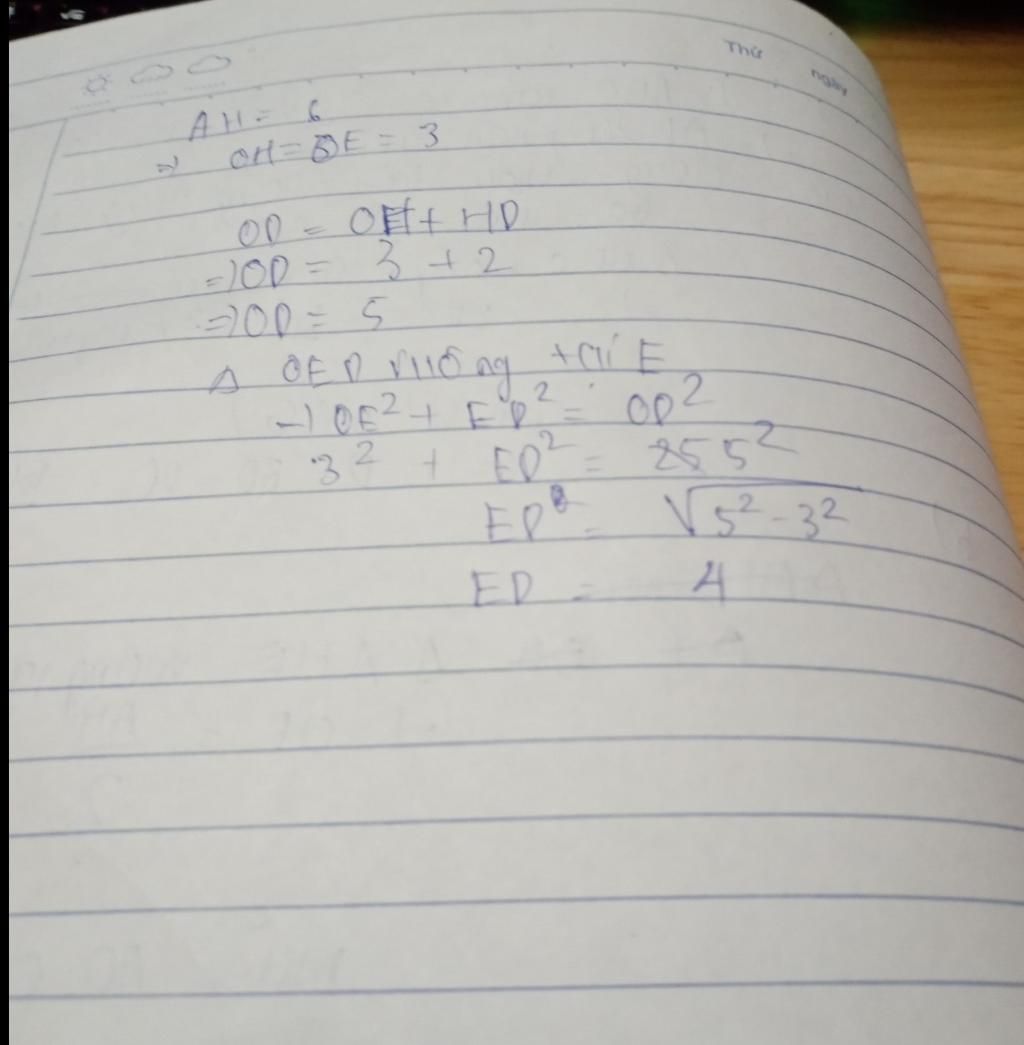 Thứ ngày
AH = 6
=> OH = OE = 3
OD = OH + HD
=> OD = 3 + 2
=> OD = 5
Δ OED vuông tại E
-> OE² + ED² = OD²
3² + ED² = 25 5²
ED = √5² - 3²
ED = 4